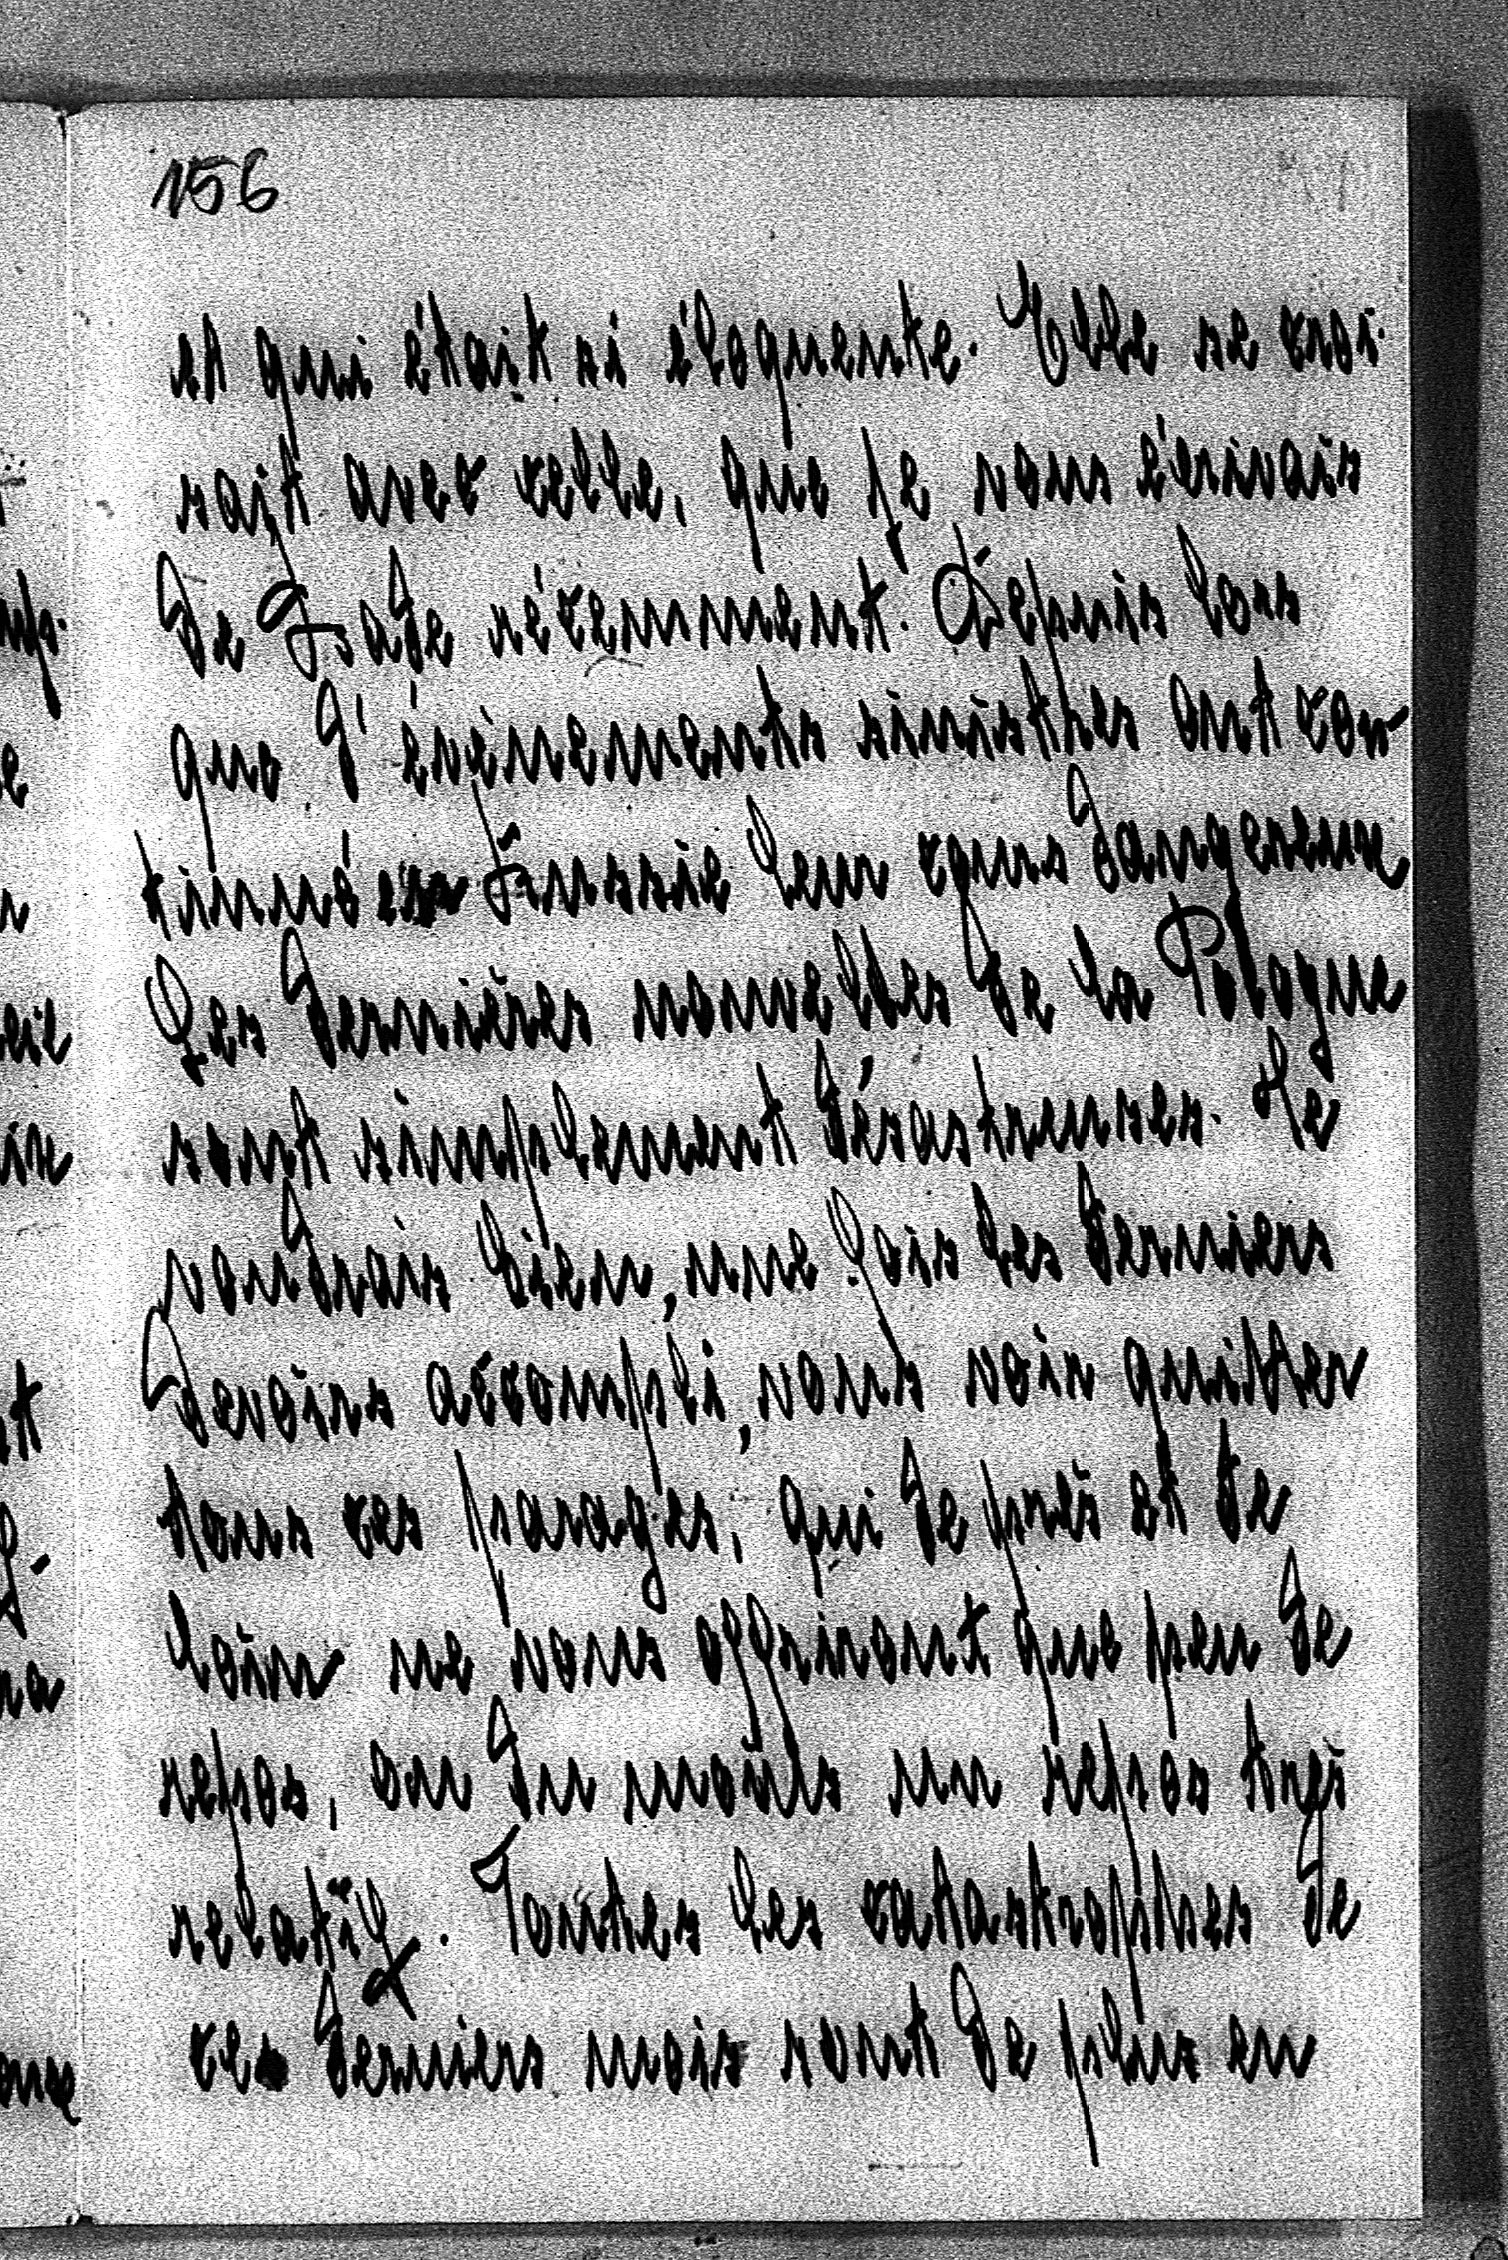 156
et qui était si éloquente. Elle se croi-
sait avec celle, que je vous écrivais
de Isade récemment. Depuis lors
que d'événements sinistres ont con-
tinué en Russie leur cours dangereux
Les dernières nouvelles de la Pologne
sont simplement désastreuses. Je
voudrais bien, une fois les derniers
devoirs accompli, vous voir quitter
tous ces parages, qui de près et de
loin ne vous offriront que peu de
repos, ou du moins un repos très
relatif. Toutes les catastrophes de
ces derniers mois sont de plus en